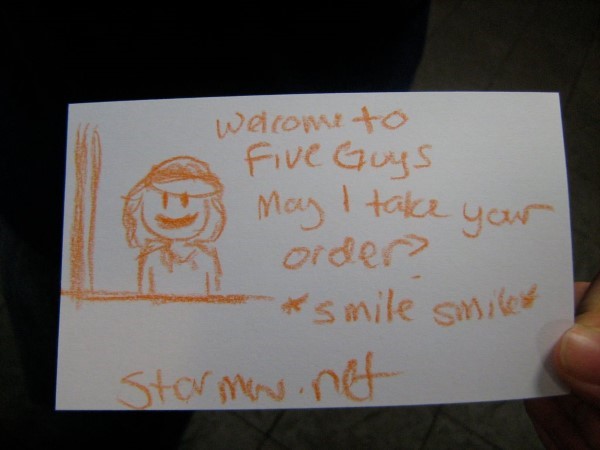 Welcome to
Five Guys
May I take your
order?
*smile smile*
stormw.net